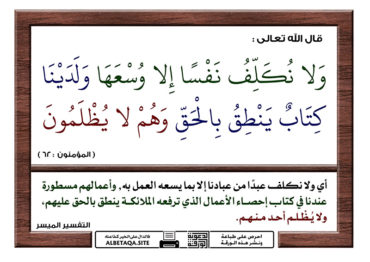 قال الله تعالى :
وَلا نُكَلِّفُ نَفْسًا إِلا وُسْعَهَا وَلَدَيْنَا
كِتَابٌ يَنْطِقُ بِالْحَقِّ وَهُمْ لا يُظْلَمُونَ
( المؤمنون : ٦٢ )
أي ولا نكلف عبدًا من عبادنا إلا بما يسعه العمل به , وأعمالهم مسطورة
عندنا في كتاب إحصاء الأعمال الذي ترفعه الملائكة ينطق بالحق عليهم،
ولا يُظْلم أحد منهم.
التفسير الميسر
احرص على طباعة
ونشر هذه الورقة
فالدال على الخير كفاعله
ALBETAQA.SITE